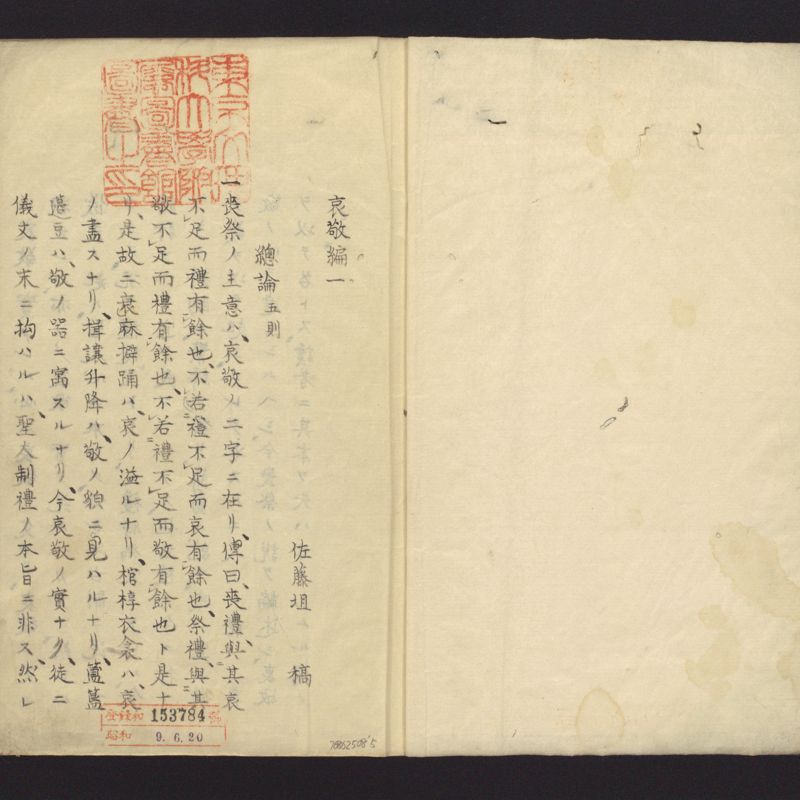 哀敬編一
佐藤坦 稿
總論 五則
一喪祭ノ主意ハ、哀敬ノ二字ニ在リ、傳曰、喪禮、與其哀
不足而禮有餘也、不若禮不足而哀有餘也、祭禮、與其
敬不足而禮有餘也、不若禮不足而敬有餘也ト是ナ
リ、是故ニ衰麻擗踊ハ、哀ノ溢ルナリ、棺椁衣衾ハ、哀
ノ盡スナリ、揖讓升降ハ、敬ノ貌ニ見ハルナリ、簠簋
籩豆ハ、敬ノ器ニ寓スルナリ、今哀敬ノ實ナク、徒ニ
儀文ノ末ニ拘ハルハ、聖人制禮ノ本旨ニ非ス、然レ
登錄和 153784 號
昭和 9.6.20